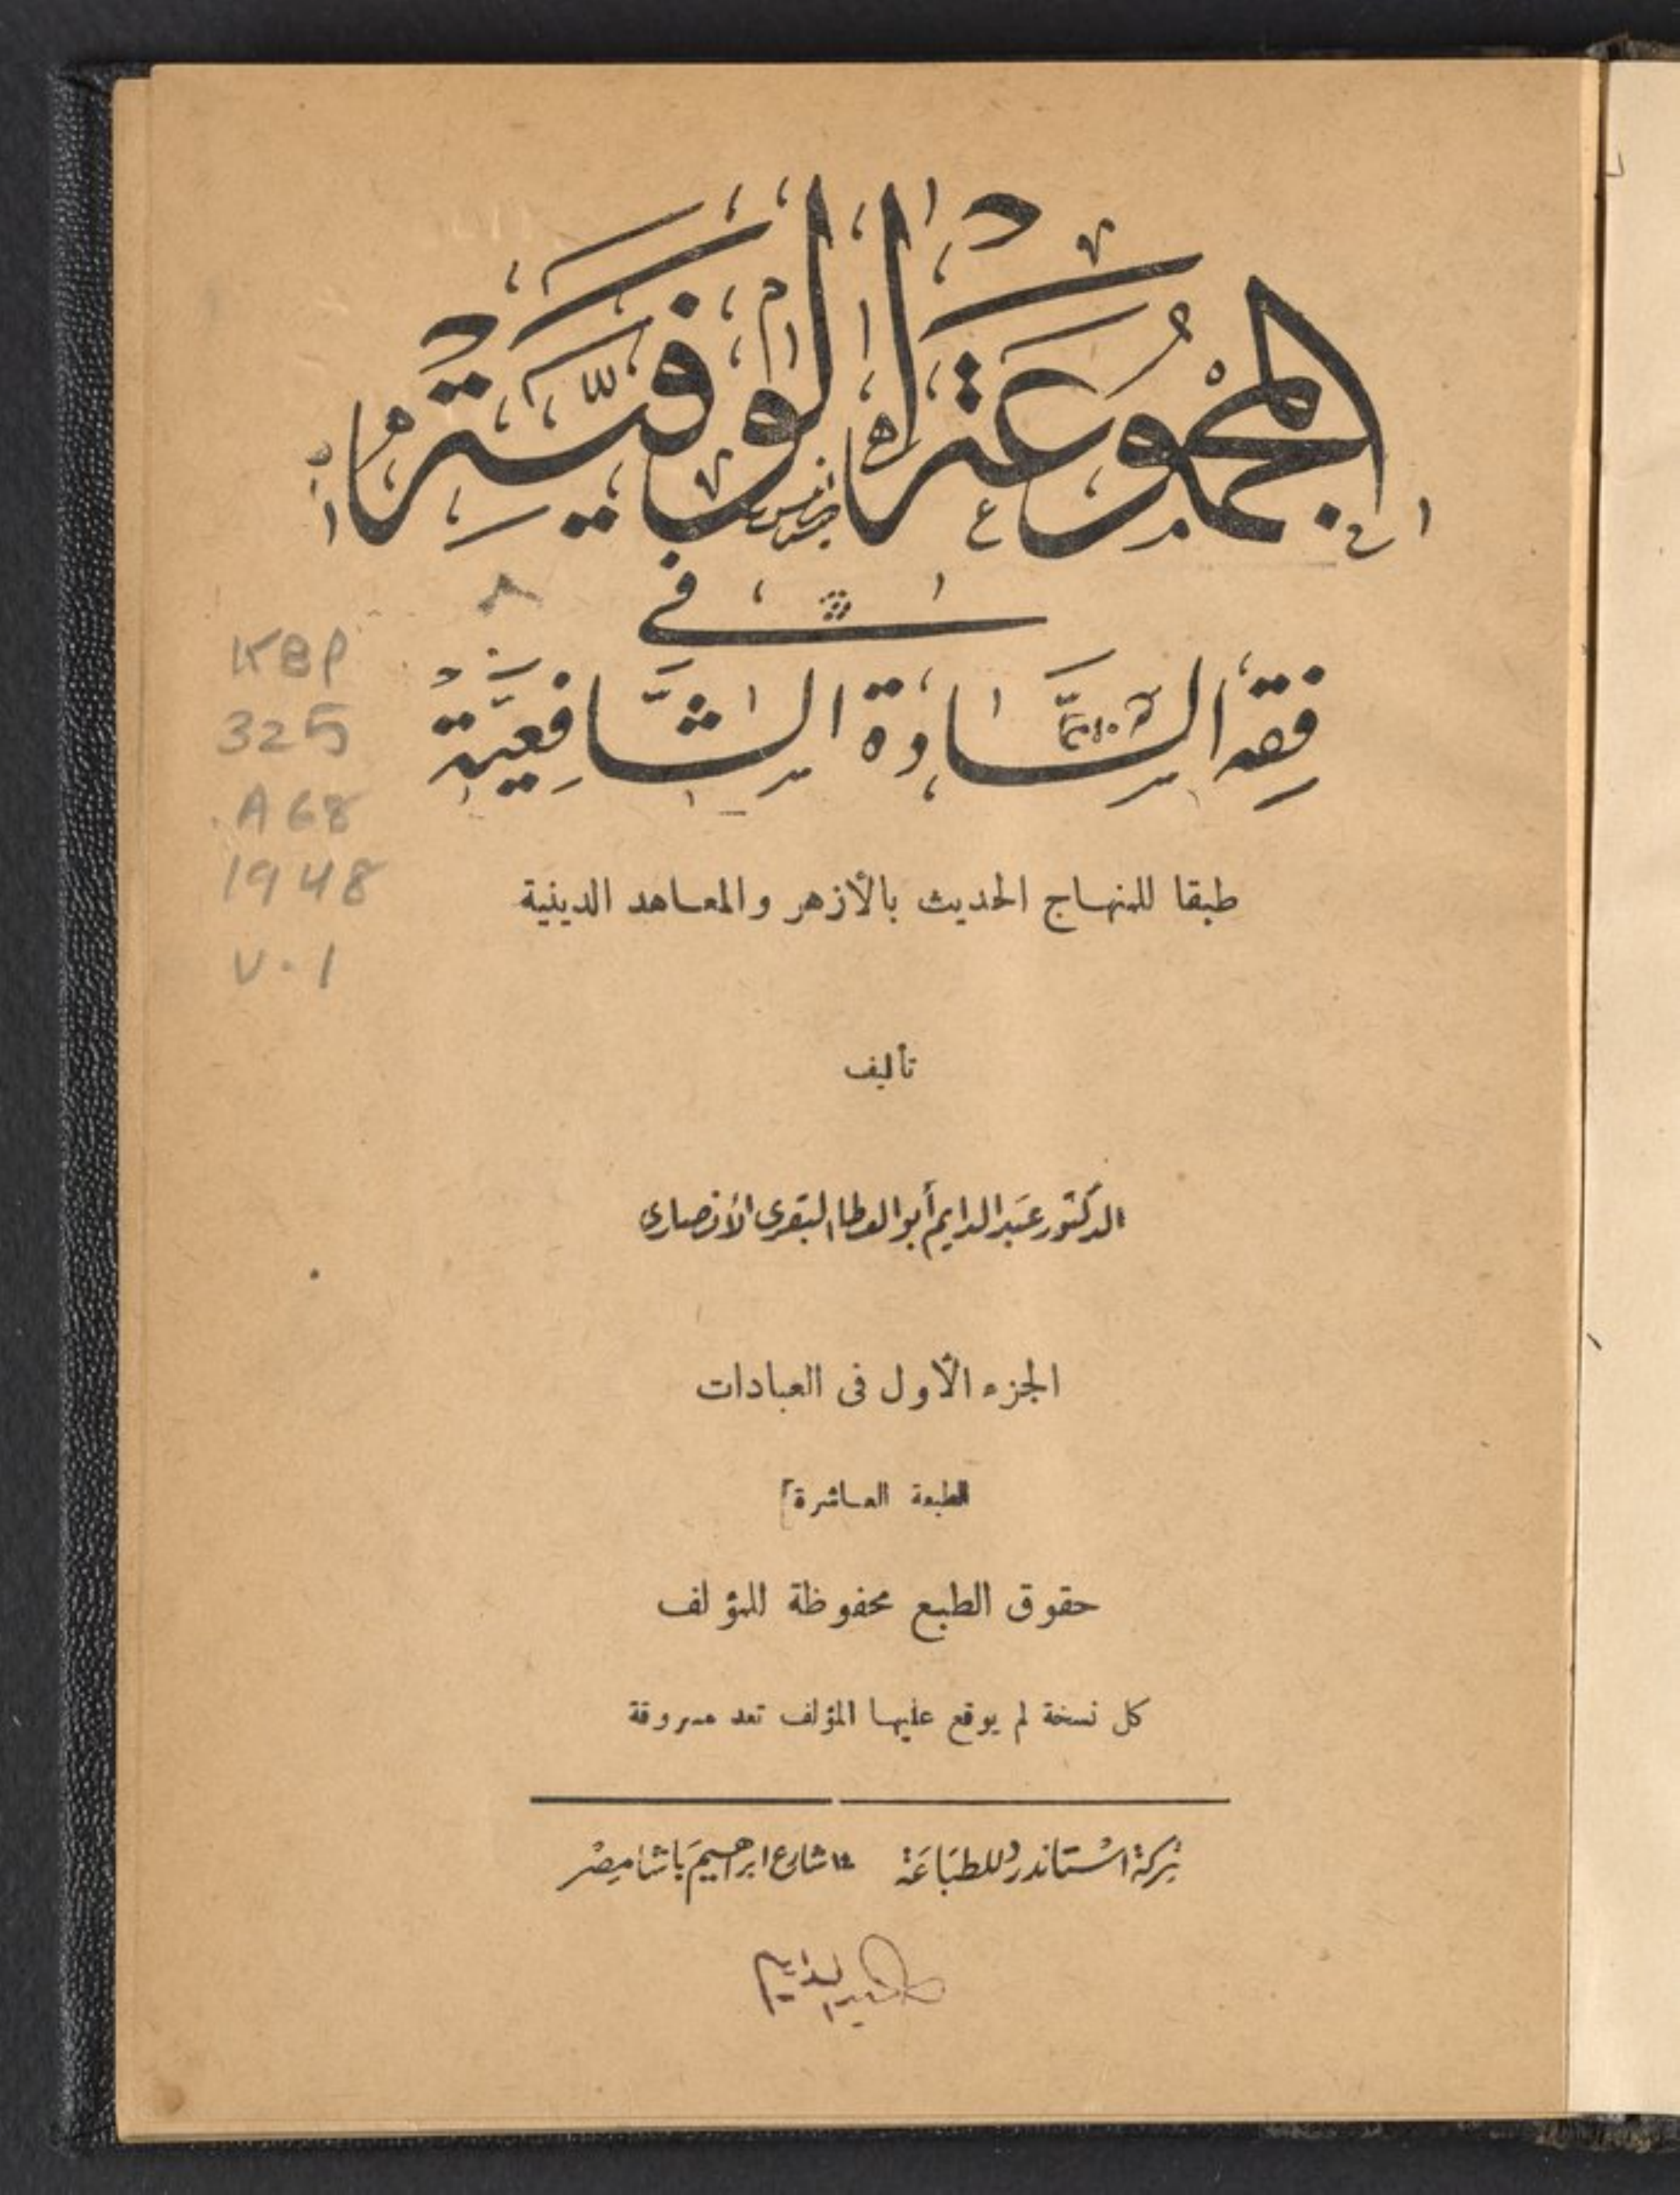 المجموعة الوفية
في
فقه السادة الشافعية
KBP
325
.A68
1948
v.1
طبقا للمنهاج الحديث بالأزهر والمعاهد الدينية
تأليف
الدكتور عبد الدايم أبو العطا البقرى الأنصارى
الجزء الأول فى العبادات
الطبعة العاشرة]
حقوق الطبع محفوظة للمؤلف
كل نسخة لم يوقع عليها المؤلف تعد مسروقة
شركة استاندرد للطباعة شارع ابراهيم باشا مصر
عبد الدايم